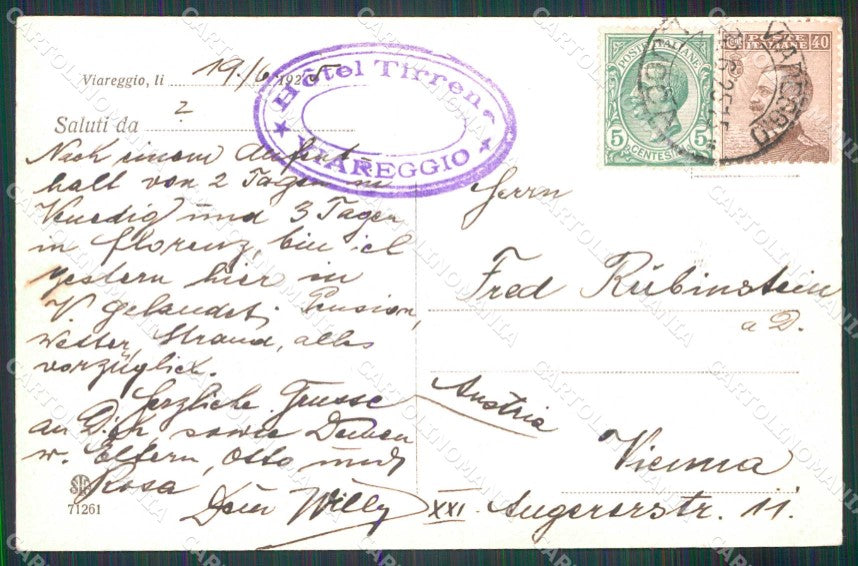 Viareggio, li 19./6 1925
Saluti da 2
Nach einem Aufent-
halt von 2 Tagen in
Venedig und 3 Tagen
in Florenz, bin ich
gestern hier in
V. gelandet. Pension,
Wetter, Strand, alles
vorzüglich.
Herzliche Grüsse
an Dich, sowie Deinen
w. Eltern, Otto und
Rosa
Dein Willy
71261
Hôtel Tirreno
VIAREGGIO
POSTE ITALIANE
5 CENTESIMI
POSTE ITALIANE 40
VIAREGGIO
Herrn
Fred Rubinstein
a D.
Austria
Vienna
XXI. Angererstr. 11.